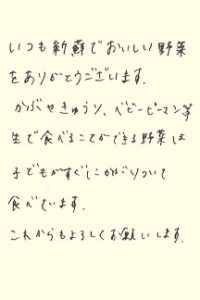 いつも新鮮でおいしい野菜
をありがとうございます.
かぶやきゅうり、ベビーピーマン等
生で食べることができる野菜は
子どもがすぐにかぶりついて
食べています.
これからもよろしくお願いします.